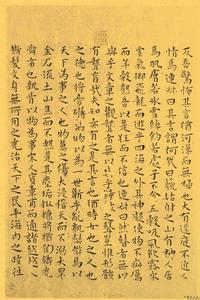 反吾驚怖其言猶河漢而無極也大有逕庭不近人
情焉連叔曰其言謂何哉曰藐姑射之山有神人居
焉肌膚若冰雪綽約若處子不食五穀吸風飲露乘
雲氣御飛龍而遊乎四海之外其神凝使物不疵癘
而年穀熟吾以是狂而不信也連叔曰然瞽者無以
與乎文章之觀聾者無以與乎鐘鼓之聲豈惟形骸
有聾盲哉夫知亦有之是其言也猶時女也之人也
之德也將旁礴萬物以為一世蘄乎亂孰弊弊焉以
天下為事之人也物莫之傷大浸稽天而不溺大旱
金石流土山焦而不熱是其塵垢粃糠將猶陶鑄堯
舜者也孰肯以物為事宋人資章甫而適諸越越人
斷髮文身無所用之堯治天下之民平海內之政往